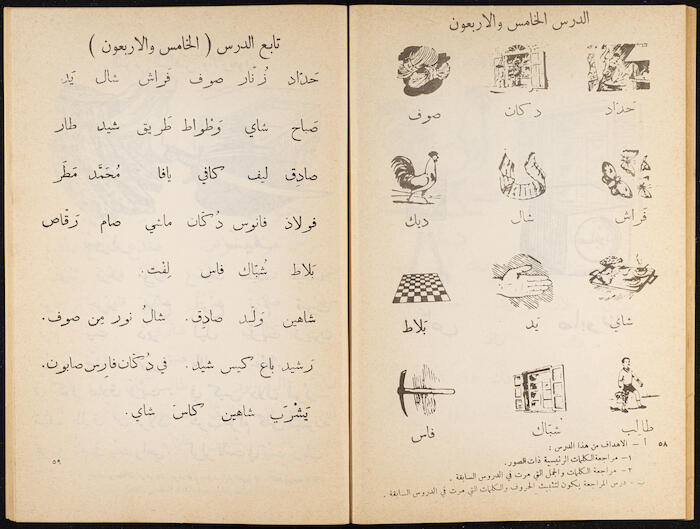 الدرس الخامس والاربعون
حَدّاد دكان صوف
فَراش شال ديك
شاي يَد بَلاط
طالِب شُبّاك فاس
٥٨ أ – الاهداف من هذا الدرس :
١– مراجعة الكلمات الرئيسية ذات الصور.
٢– مراجعة الكلمات والجمل التي مرت في الدروس السابقة .
ب – درس المراجعة يكون لتثبيت الحروف والكلمات التي مرت في الدروس السابقة .
تابع الدرس ( الخامس والاربعون )
حَدّاد زُنار صوف فَراش شال يَد
صَباح شاي وَطْواط طَريق شيد طار
صادِق ليف كافي يافا مُحَمَّد مَطَر
فولاذ فانوس دُكّان ماشي صام رَقّاص
بَلاط شُبّاك فاس لِفْت.
شاهين وَليد صادِق. شالُ نور مِن صوف.
رَشيد باعَ كيس شيد. في دُكّان فارِس صابون.
يَشْرَب شاهين كاسَ شاي.
٥٩